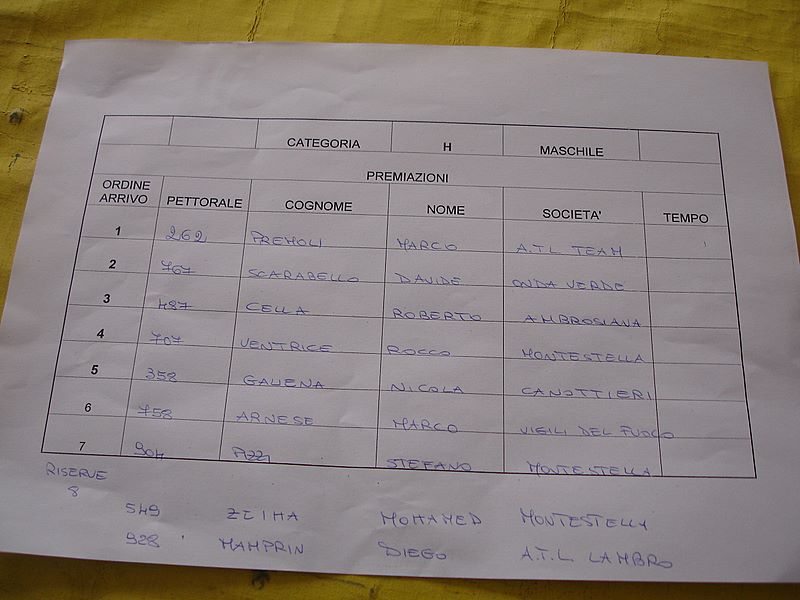 CATEGORIA H MASCHILE
PREMIAZIONI
ORDINE ARRIVO PETTORALE COGNOME NOME SOCIETA' TEMPO
1 262 PREMOLI MARCO A.T.L. TEAM
2 767 SCARABELLO DAVIDE ONDA VERDE
3 487 CELLA ROBERTO AMBROSIANA
4 707 VENTRICE ROCCO MONTESTELLA
5 358 GALIENA NICOLA CANOTTIERI
6 758 ARNESE MARCO VIGILI DEL FUOCO
7 904 STEFANO MONTESTELLA
RISERVE
8 549 ZEIHA MOHAMED MONTESTELLA
928 MAMPRIN DIEGO A.T.L. LAMBRO